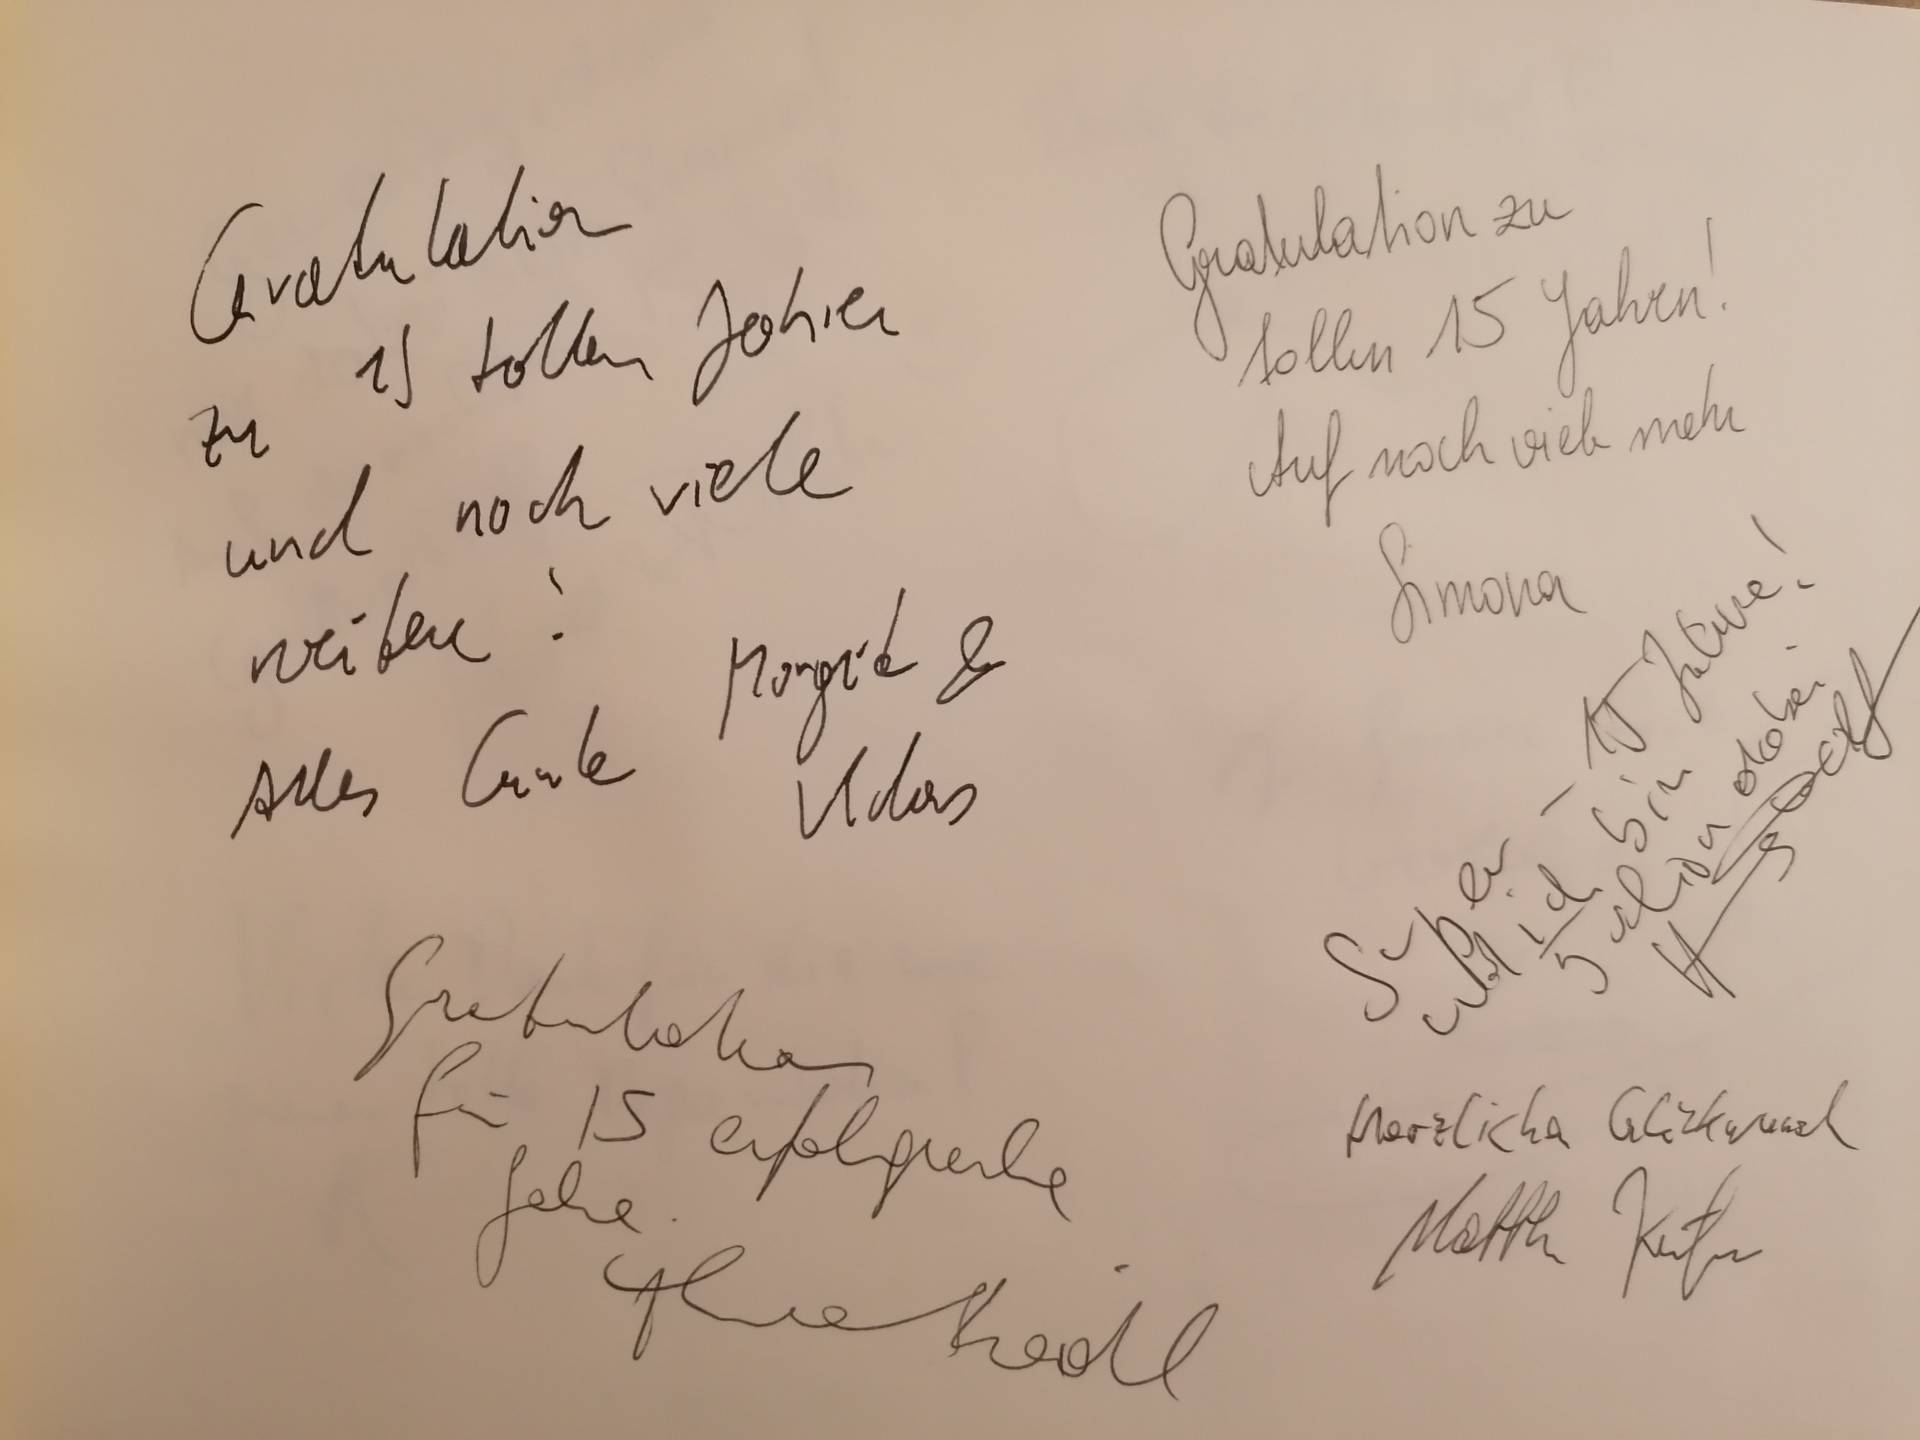 Gratulation
zu 15 tollen Jahren
und noch viele
weitere!
Alles Gute Margit &
Gratulation zu
tollen 15 Jahren!
Auf noch viele mehr
Simona
Super - 15 Jahre!
und ich bin
5 schon dabei
Gratulation
für 15 erfolgreiche
Jahre.
Herzlichen Glückwunsch